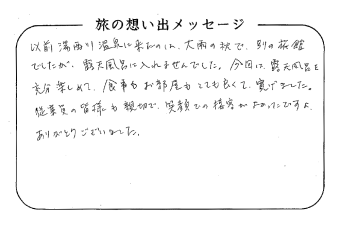 旅の想い出メッセージ
以前湯西川温泉に来たのは、大雨の秋で、別の旅館
でしたが、露天風呂に入れませんでした。今回は、露天風呂を
充分楽しめて、食事もお部屋もとても良くて、寛げました。
従業員の皆様も親切で、笑顔での接客がよかったですよ。
ありがとうございました。